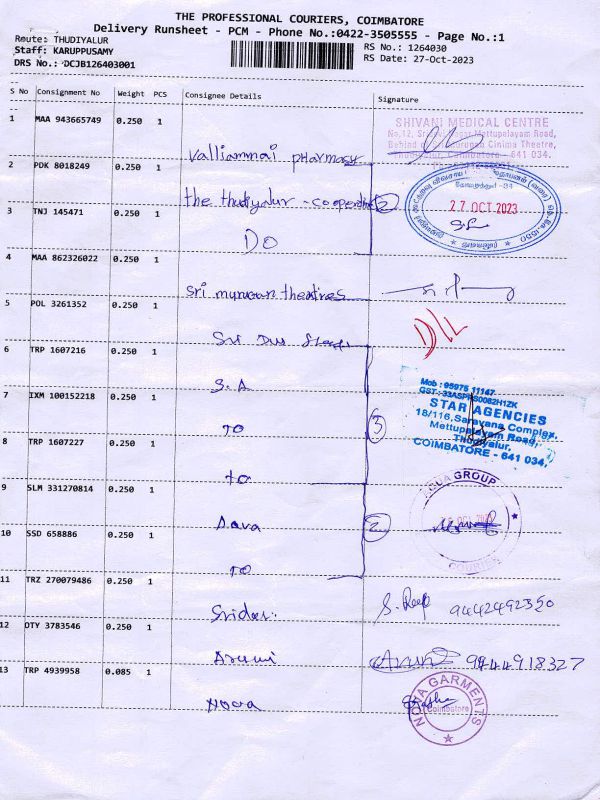 THE PROFESSIONAL COURIERS, COIMBATORE
Delivery Runsheet - PCM - Phone No.:0422-3505555 - Page No.:1
Route: THUDIYALUR
RS No.: 1264030
Staff: KARUPPUSAMY
RS Date: 27-Oct-2023
DRS No.: DCJB126403001
S No Consignment No Weight PCS Consignee Details Signature
1 MAA 943665749 0.250 1
valliammai pharmacy
SHIVANI MEDICAL CENTRE
Mettupalayam Road,
Cinima Theatre,
Thudiyalur, Coimbatore - 641 034.
2 PDK 8018249 0.250 1
the thudiyalur - cooperative 2
27 OCT 2023
3 TNJ 145471 0.250 1
DO
4 MAA 862326022 0.250 1
sri murugan theatres
5 POL 3261352 0.250 1
Sri
D/L
6 TRP 1607216 0.250 1
S.A
7 IXM 100152218 0.250 1
TO
3
Mob : 95975 11147
STAR AGENCIES
18/116, Saravana Complex,
Mettupalayam Road,
Thudiyalur,
COIMBATORE - 641 034.
8 TRP 1607227 0.250 1
to
9 SLM 331270814 0.250 1
Aava
2
GROUP
COURIER
10 SSD 658886 0.250 1
TO
11 TRZ 270079486 0.250 1
Sridar
9442492350
12 OTY 3783546 0.250 1
Arumi
9944918327
13 TRP 4939958 0.085 1
Nova
NOVA GARMENTS
Coimbatore